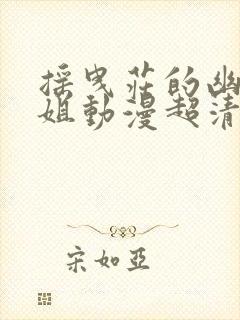 揺曳荘的幽
姐動漫超清
宋如亞